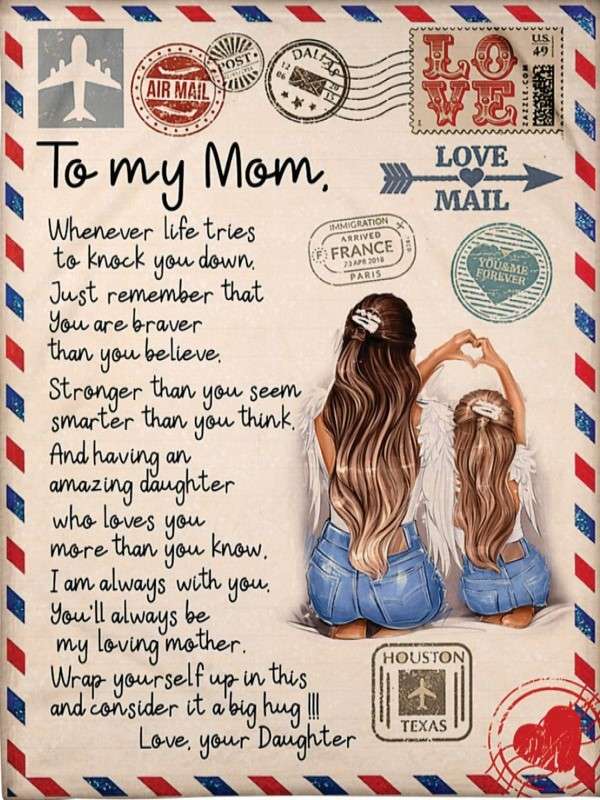 AIR MAIL
POST
DALLAS
LOVE
U.S.
49
ZAZZLE.COM
To my Mom,
LOVE
MAIL
Whenever life tries
to knock you down,
Just remember that
You are braver
than you believe,
Stronger than you seem
smarter than you think,
And having an
amazing daughter
who loves you
more than you know,
I am always with you,
You'll always be
my loving mother.
Wrap yourself up in this
and consider it a big hug !!!
Love, your Daughter
IMMIGRATION
ARRIVED
FRANCE
23 APR 2018
PARIS
YOU&ME
FOREVER
HOUSTON
TEXAS